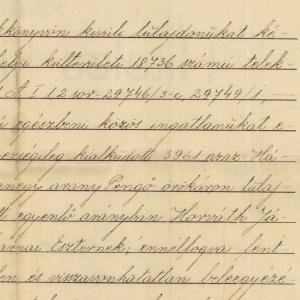 könyvön kivüli tulajdonukat ké-
külterületi 18736 számu telek-
A I 12 sor 29746/3-c, 29749/1,
egészbeni közös ingatlanukat e
kialkudott 3961 azaz Há-
arany Pengő örökáron tulaj-
egyenlő arányban Horváth Já-
Eszternek; ennélfogva fent
és visszavonhatatlan beleegyezé-